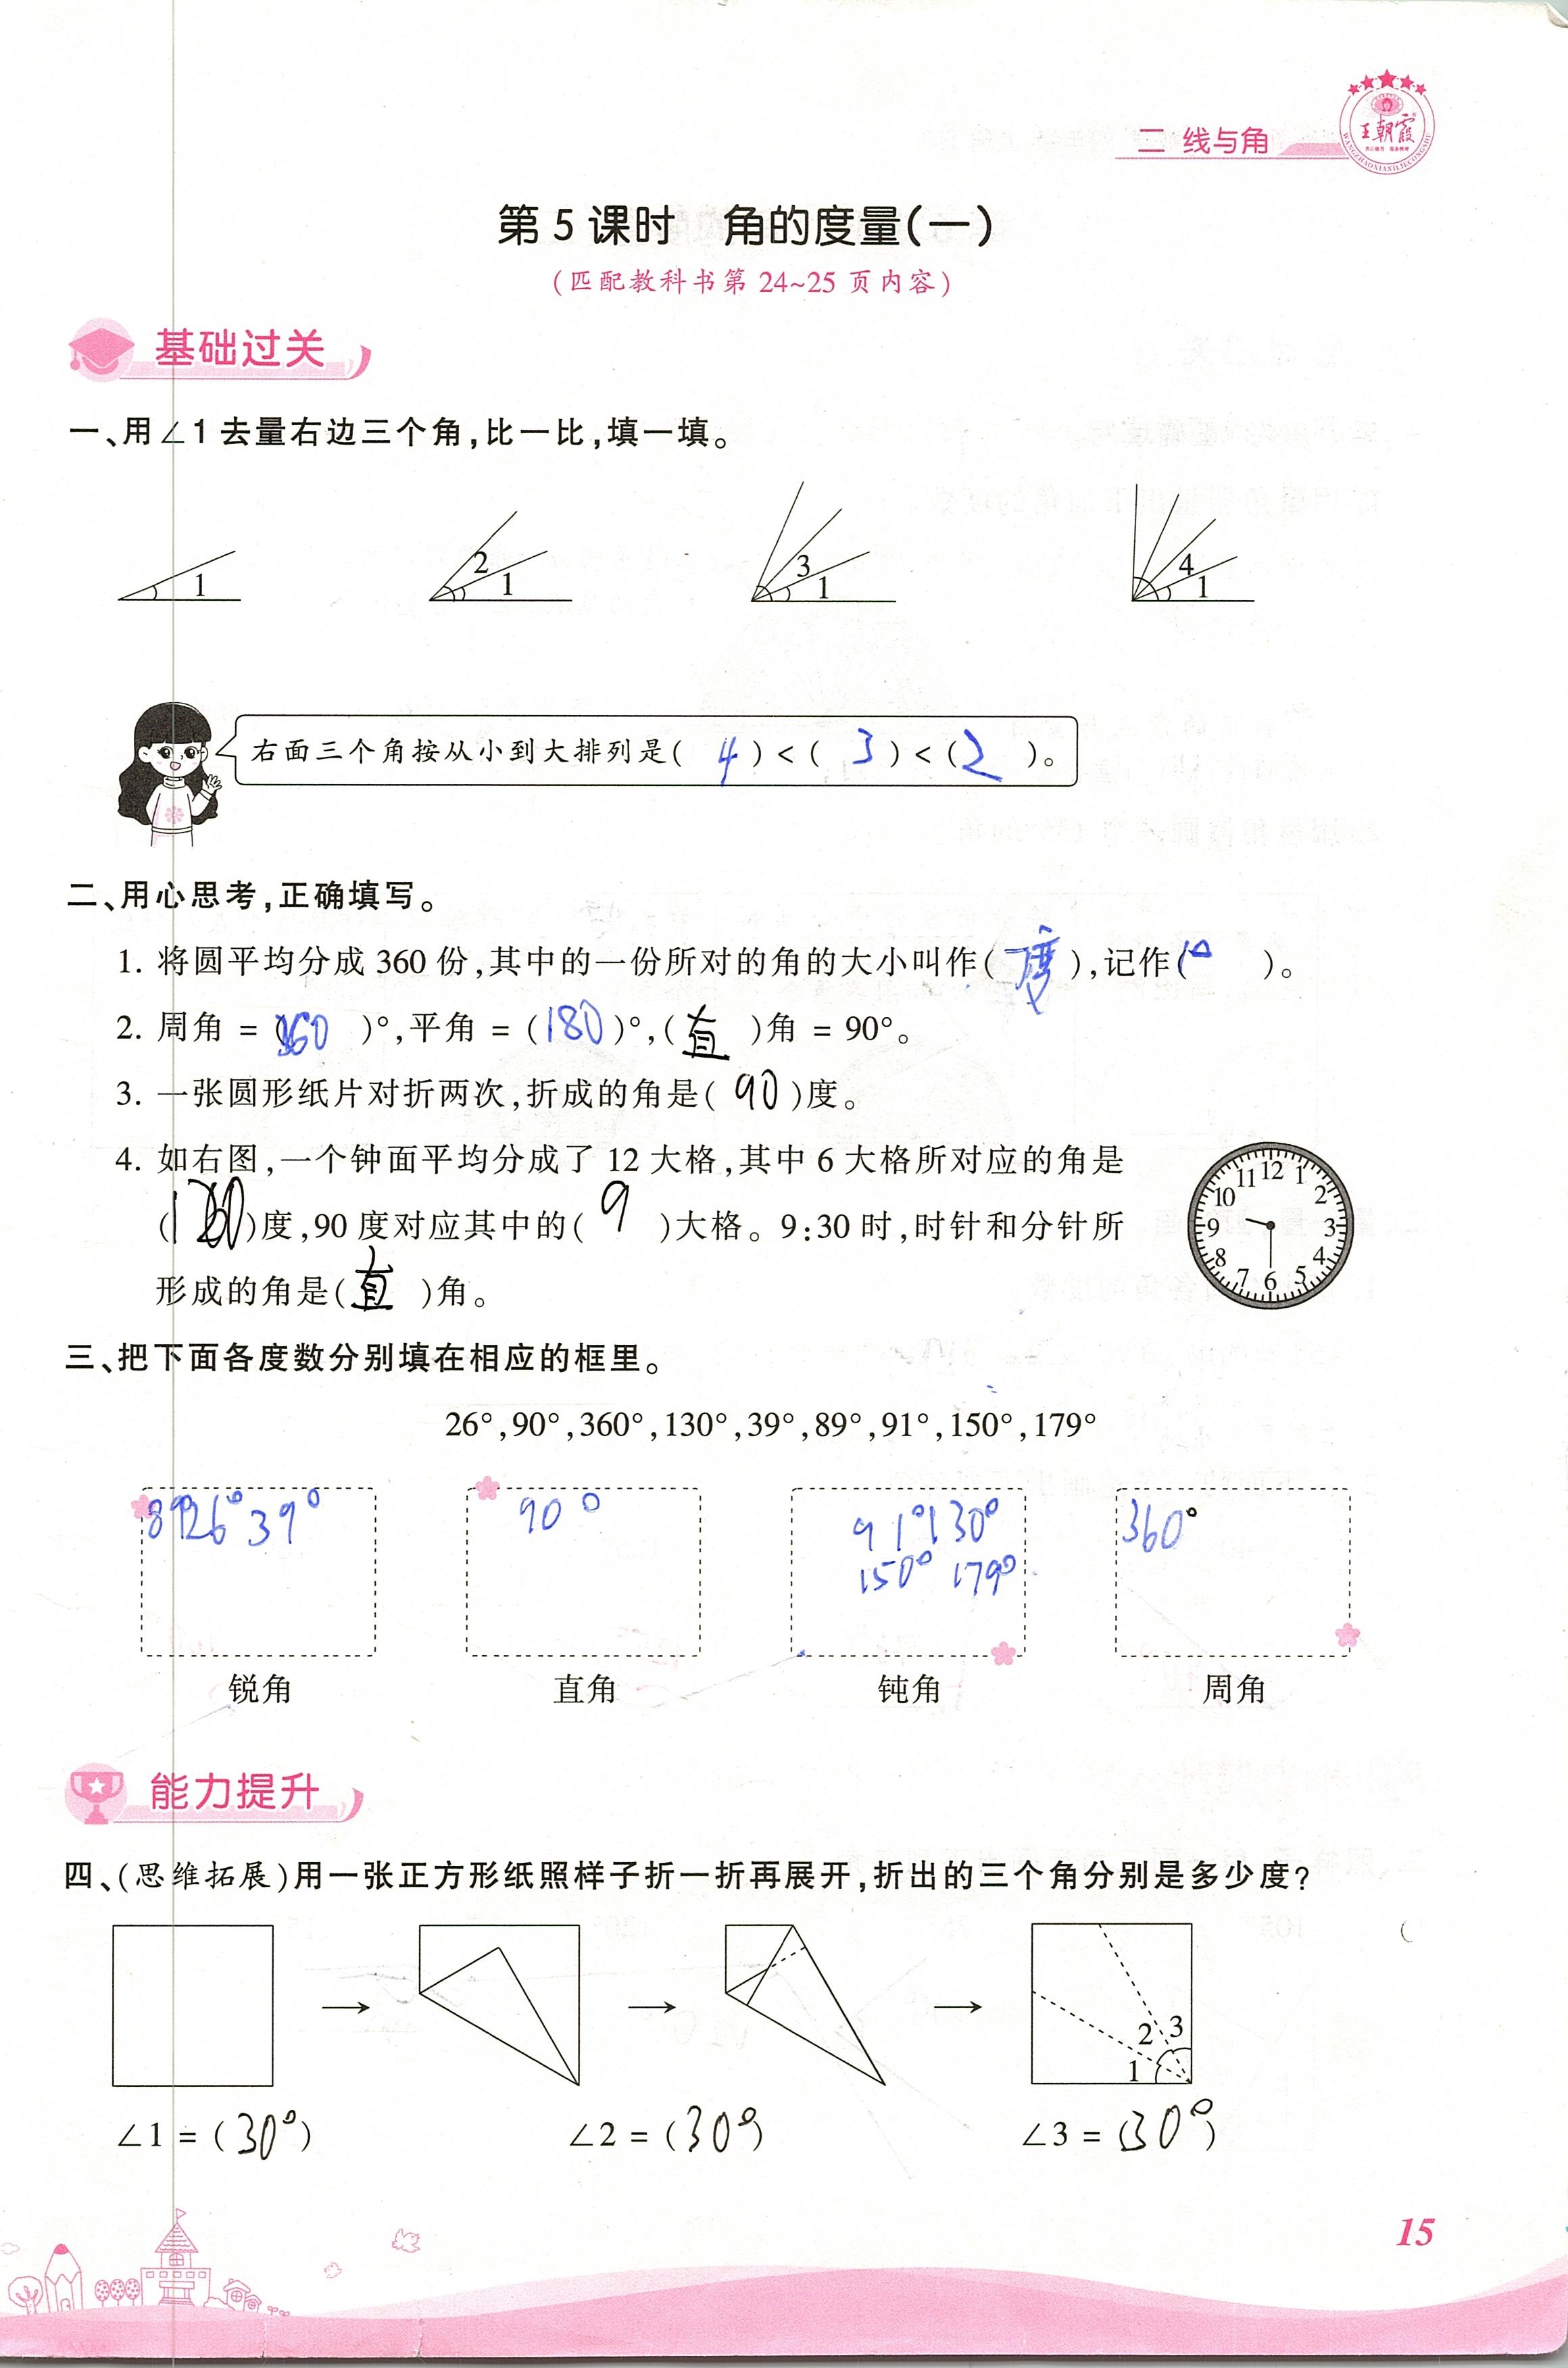 二 线与角
王朝霞
第 5 课时 角的度量(一)
(匹配教科书第 24~25 页内容)
基础过关
一、用∠1去量右边三个角,比一比,填一填。
1
2 1
3 1
4 1
右面三个角按从小到大排列是( 4 )<( 3 )<( 2 )。
二、用心思考,正确填写。
1. 将圆平均分成 360 份,其中的一份所对的角的大小叫作( 度 ),记作(1° )。
2. 周角 = (360 )°,平角 = (180)°,( 直 )角 = 90°。
3. 一张圆形纸片对折两次,折成的角是( 90 )度。
4. 如右图,一个钟面平均分成了 12 大格,其中 6 大格所对应的角是
( )度,90 度对应其中的( 9 )大格。9:30 时,时针和分针所
形成的角是( 直 )角。
12 1 2 3 4 5 6 7 8 9 10 11
三、把下面各度数分别填在相应的框里。
26°,90°,360°,130°,39°,89°,91°,150°,179°
89° 26° 39°
90°
91° 130°
150° 179°
360°
锐角
直角
钝角
周角
能力提升
四、(思维拓展)用一张正方形纸照样子折一折再展开,折出的三个角分别是多少度?
2 3
1
∠1 = (30°)
∠2 = (30°)
∠3 = (30°)
15